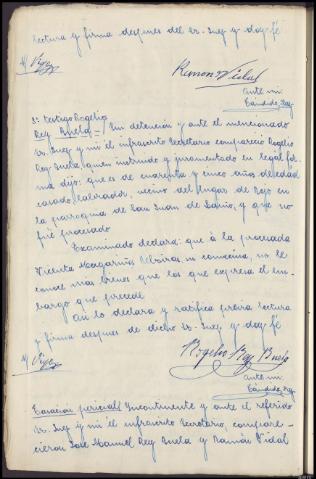 lectura y firma despues del Sr. Juez y doy fé
Ramon Vidal
Ante mi
Cándido Rey
3º testigo Rogelio
Rey Buela = Sin detencion y ante el mencionado
Sr. Juez y mi el infrascrito Secretario compareció Rogelio
Rey Buela, quien instruido y juramentado en legal for
ma dijo: que es de cuarenta y cinco años de edad
casado, labrador, vecino del lugar de
la parroquia de San Juan de y que no
fué procesado
Examinado declara: que á la procesada
Vicenta Magariños su convecina, no le
conoce mas bienes que los que expresa el em-
bargo que precede
Asi lo declara y ratifica previa lectura
y firma despues de dicho Sr. Juez y doy fé
Rogelio Rey Buela
Ante mi
Cándido Rey
Tasacion pericial / Incontinente y ante el referido
Sr. Juez y mi el infrascrito Secretario, compare-
cieron José Manuel Rey Buela y Ramón Vidal